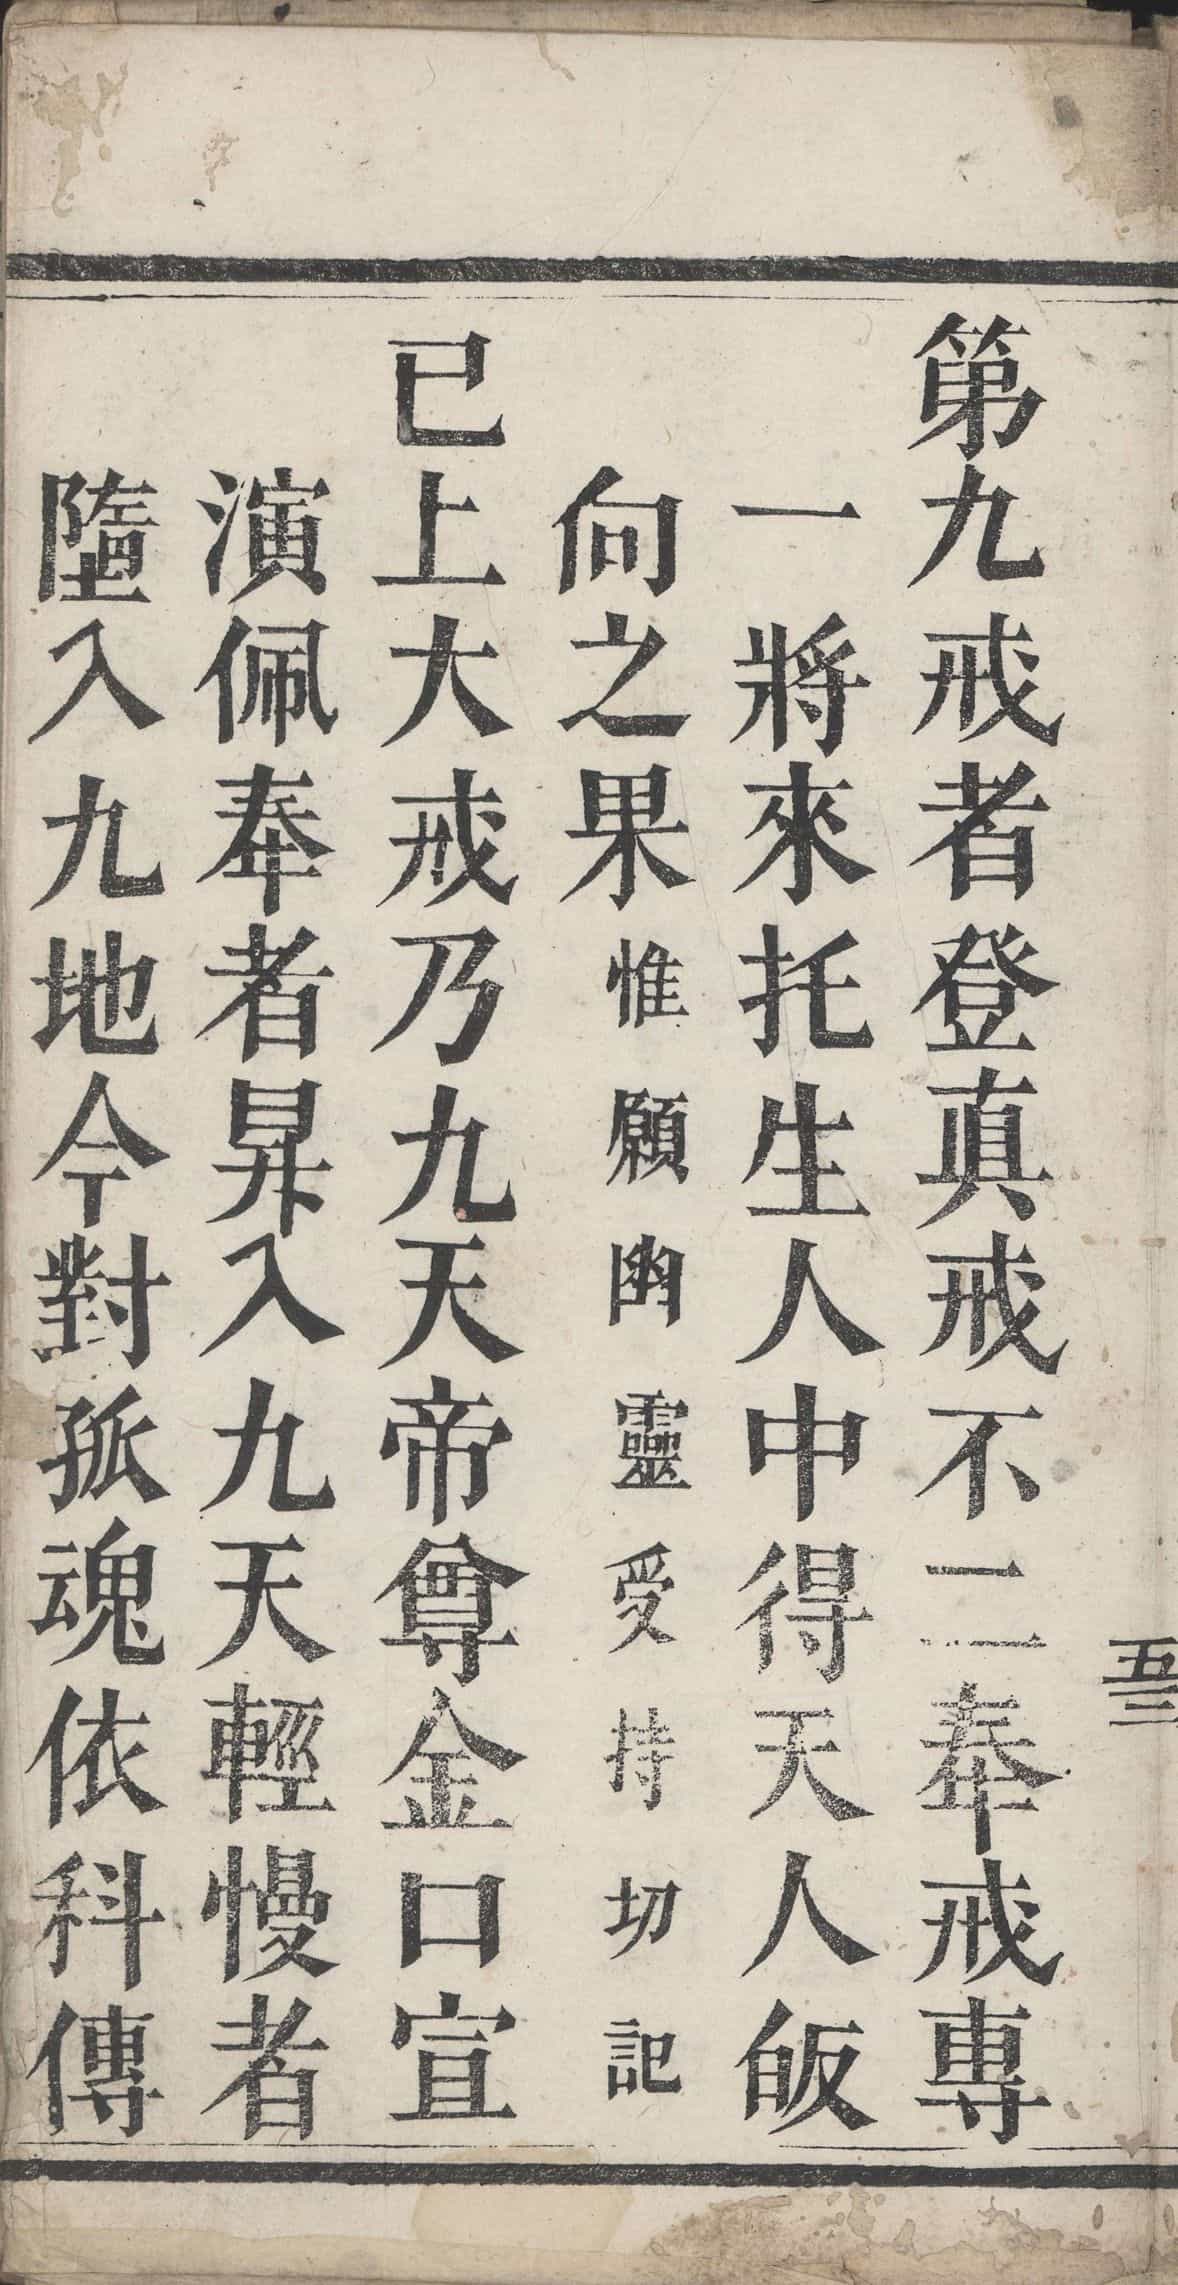 第九戒者登真戒不二奉戒專
一將來托生人中得天人皈
向之果惟願幽靈受持切記
已上大戒乃九天帝尊金口宣
演佩奉者昇入九天輕慢者
墮入九地今對孤魂依科傳